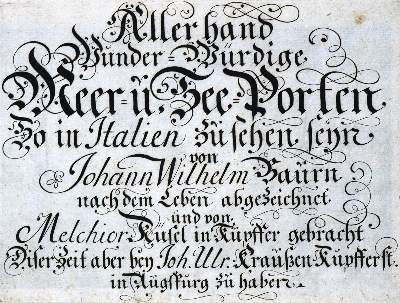 Allerhand
Wunder-Würdige
Meer- ü. See-Porten
So in Italien zü sehen seÿn
von
Johann Wilhelm Baürn
nach dem Leben abgezeichnet
und von
Melchior Küsel in Kupffer gebracht
Diser Zeit aber beÿ Joh. Ulr. Kraußen Kupfferst.
in Augspurg zü haben